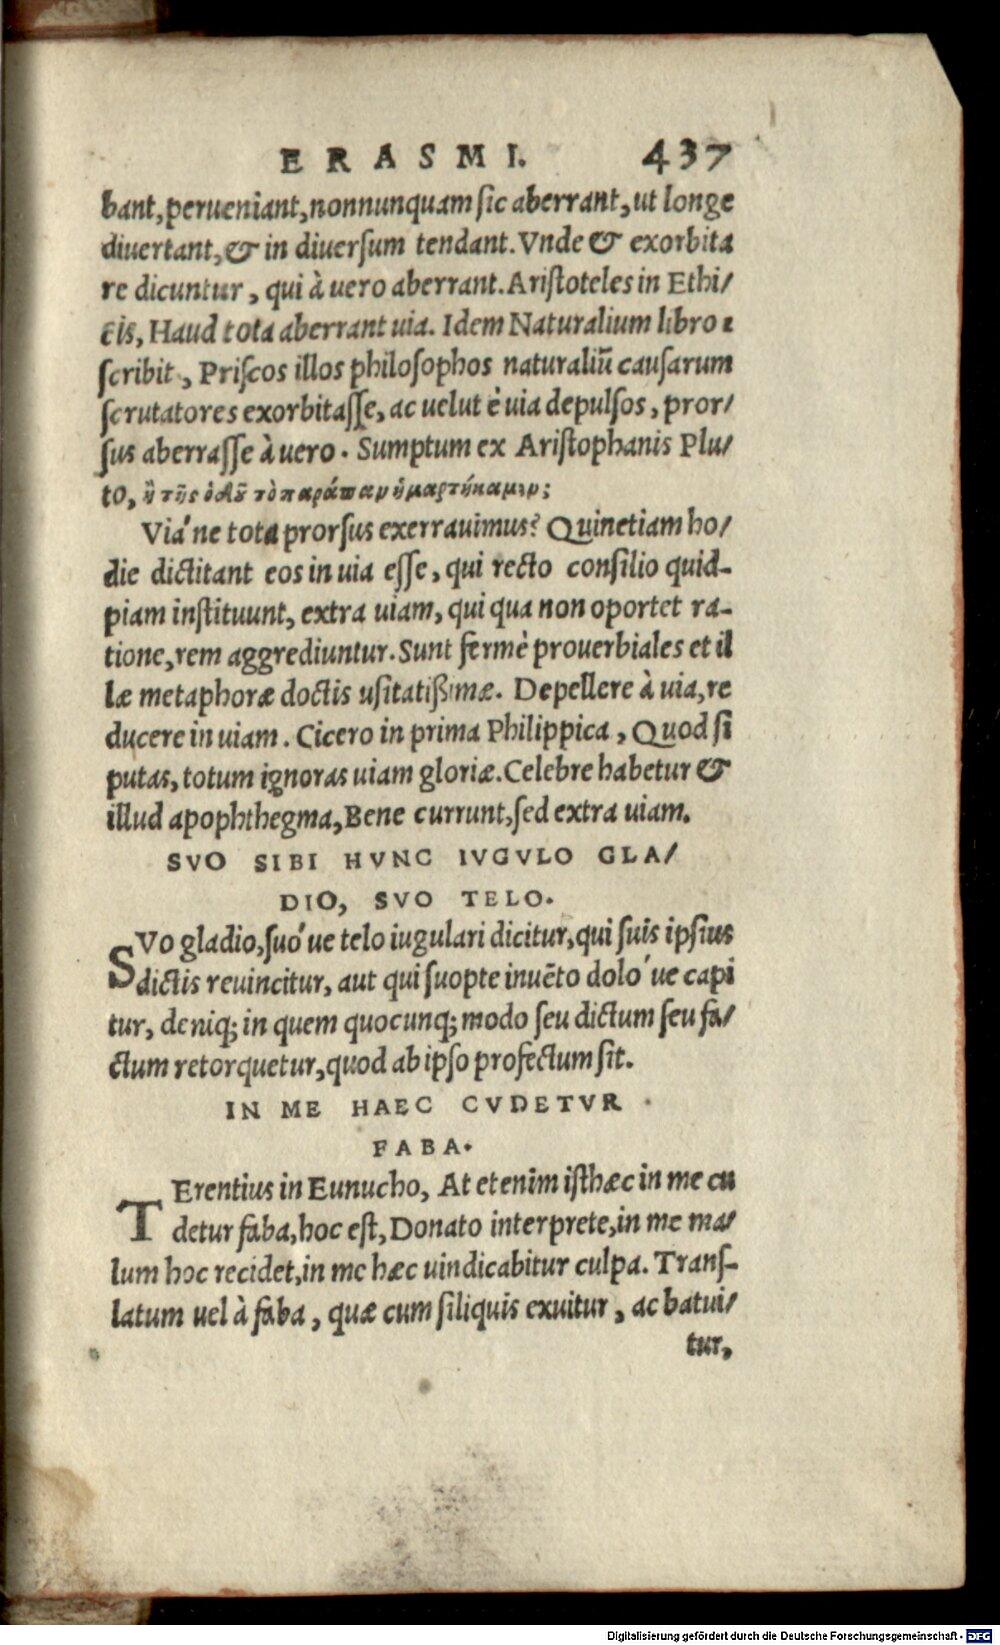 ERASMI. 437
bant, perueniant, nonnunquam sic aberrant, ut longe
diuertant, & in diuersum tendant. Vnde & exorbita
re dicuntur, qui à uero aberrant. Aristoteles in Ethi/
cis, Haud tota aberrant uia. Idem Naturalium libro 1
scribit, Priscos illos philosophos naturaliũ causarum
scrutatores exorbitasse, ac uelut è uia depulsos, pror/
sus aberrasse à uero. Sumptum ex Aristophanis Plu/
to, ἢ τῆς ὁδοῦ τὸ παράπαν ἡμαρτήκαμεν;
Via'ne tota prorsus exerrauimus? Quinetiam ho/
die dictitant eos in uia esse, qui recto consilio quid-
piam instituunt, extra uiam, qui qua non oportet ra-
tione, rem aggrediuntur. Sunt fermè prouerbiales et il
læ metaphoræ doctis usitatißimæ. Depellere à uia, re
ducere in uiam. Cicero in prima Philippica, Quod si
putas, totum ignoras uiam gloriæ. Celebre habetur &
illud apophthegma, Bene currunt, sed extra uiam.
SVO SIBI HVNC IVGVLO GLA/
DIO, SVO TELO.
SVo gladio, suo'ue telo iugulari dicitur, qui suis ipsius
dictis reuincitur, aut qui suopte inuẽto dolo'ue capi
tur, deniq; in quem quocunq; modo seu dictum seu fa/
ctum retorquetur, quod ab ipso profectum sit.
IN ME HAEC CVDETVR
FABA.
TErentius in Eunucho, At etenim isthæc in me cu
detur faba, hoc est, Donato interprete, in me ma/
lum hoc recidet, in me hæc uindicabitur culpa. Trans-
latum uel à faba, quæ cum siliquis exuitur, ac batui/
tur,
Digitalisierung gefördert durch die Deutsche Forschungsgemeinschaft - DFG